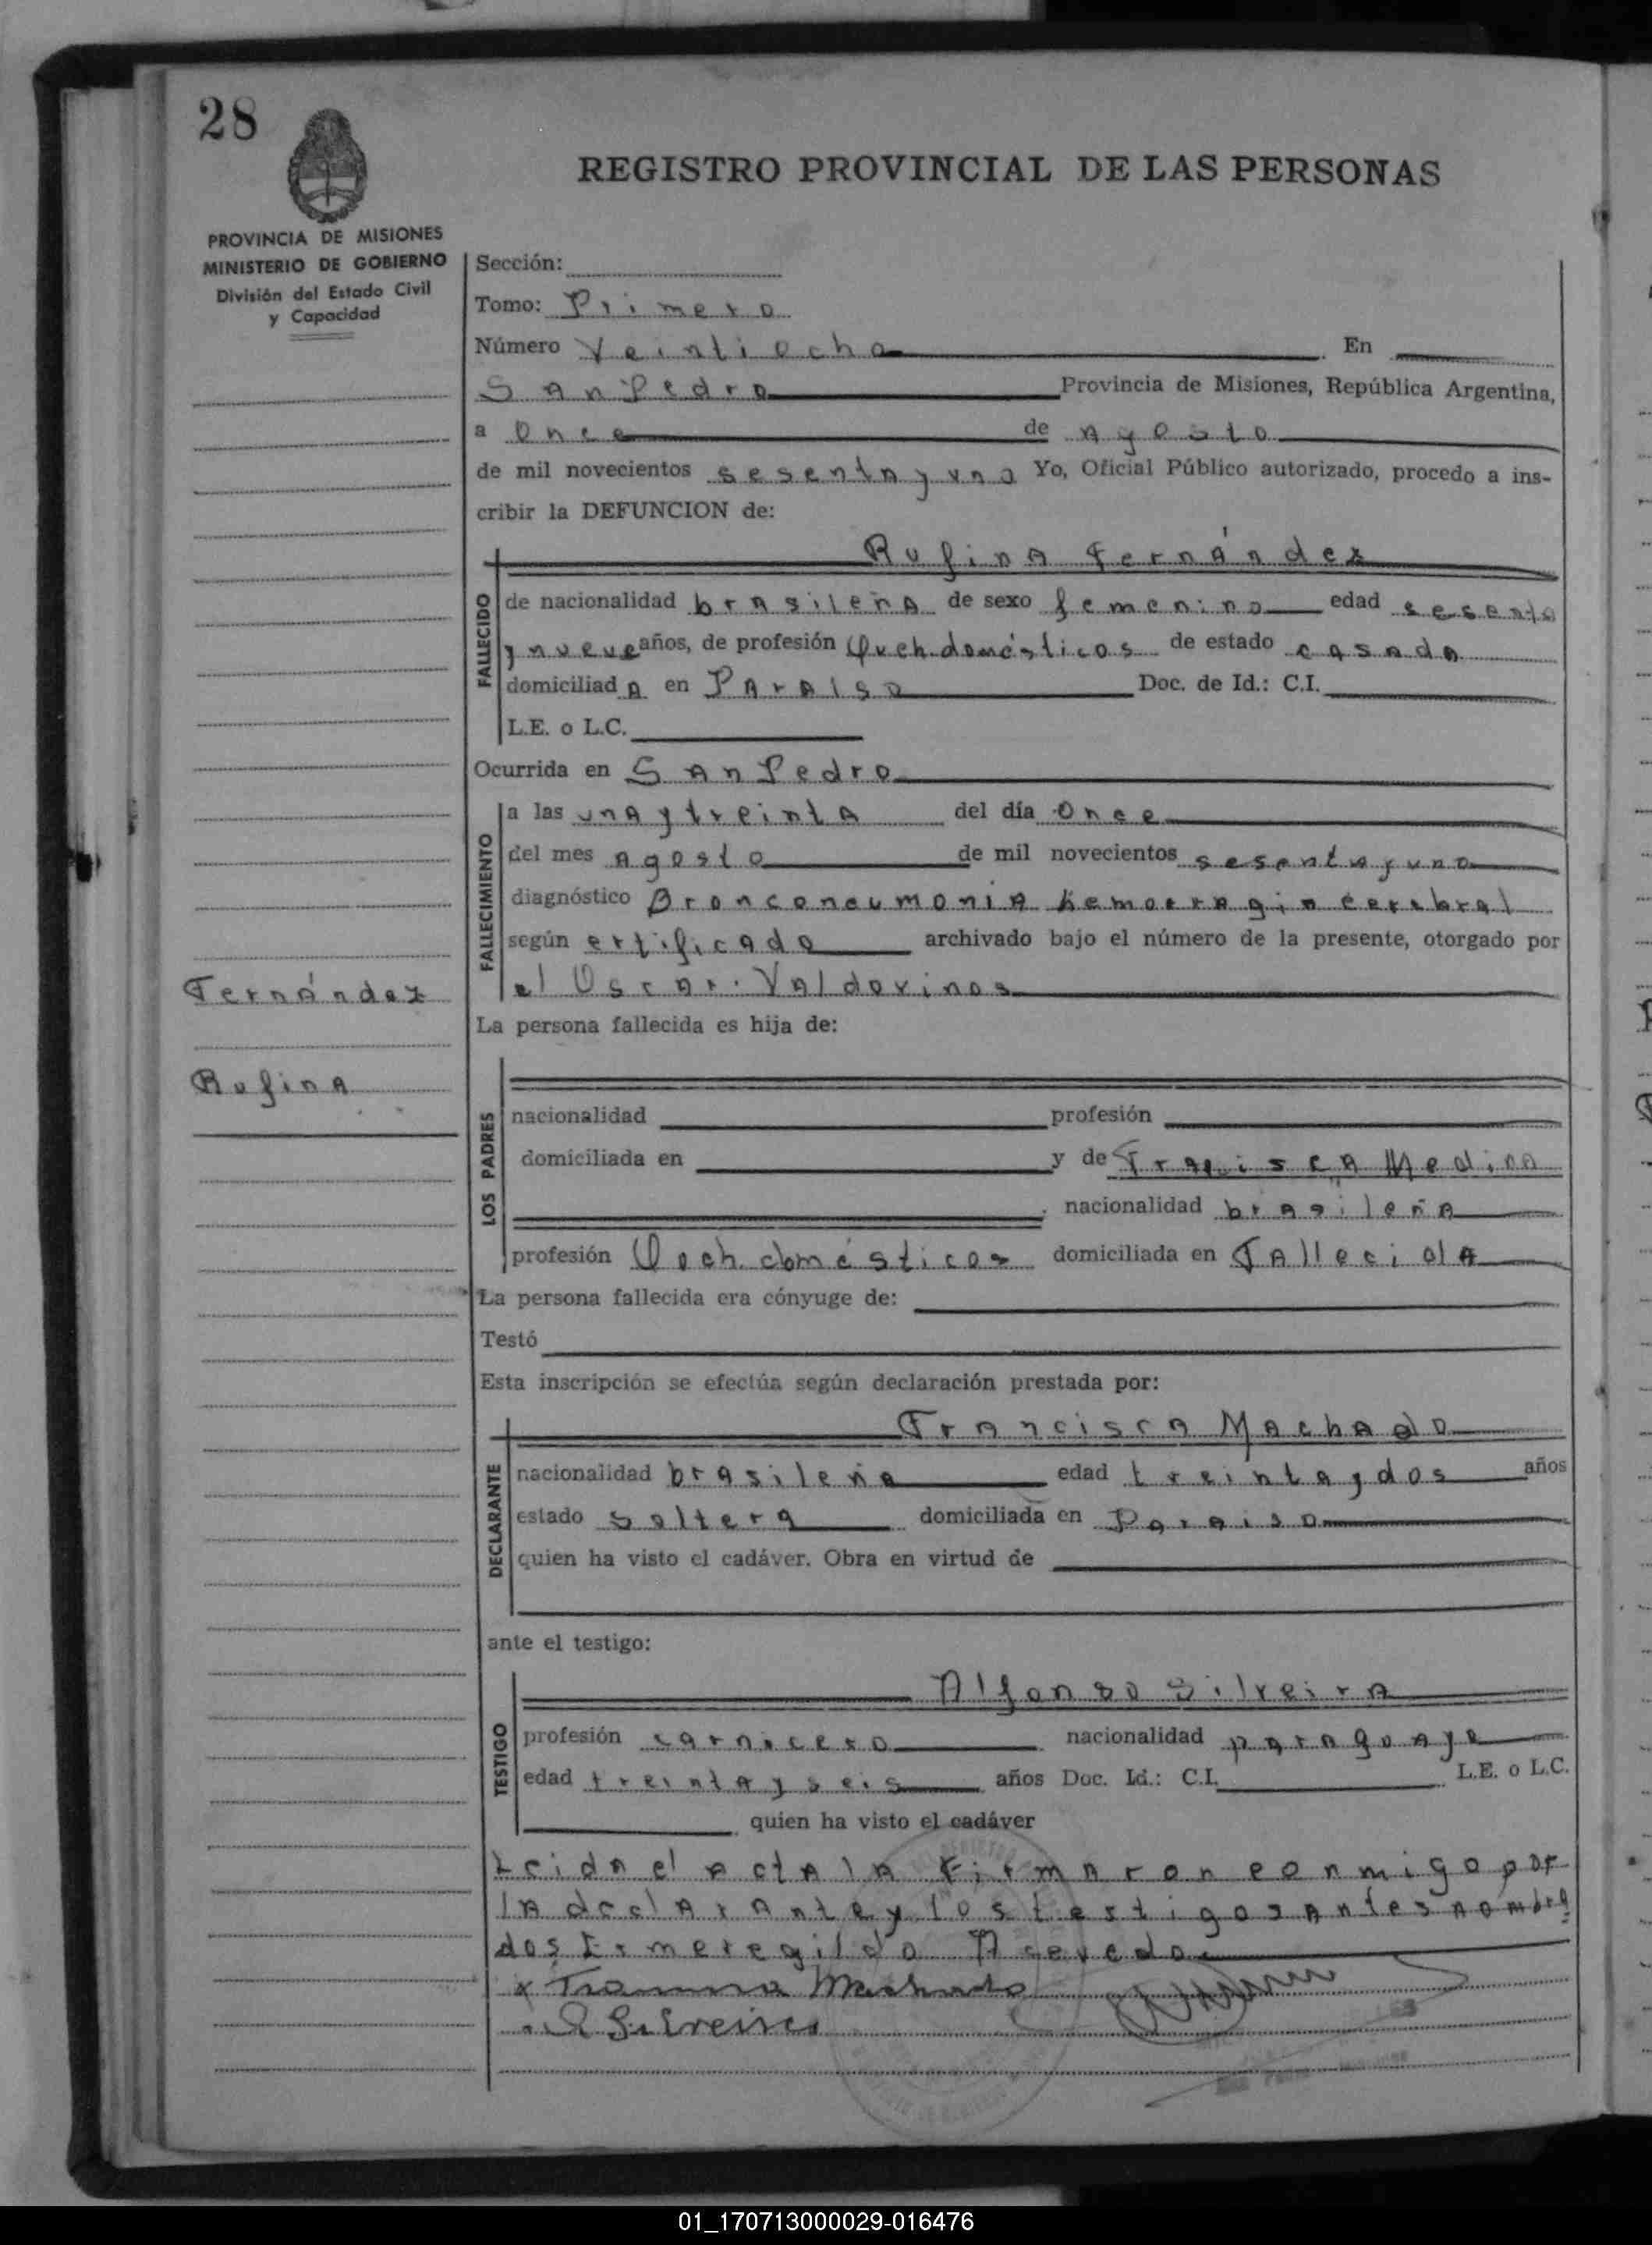 28
REGISTRO PROVINCIAL DE LAS PERSONAS
PROVINCIA DE MISIONES
MINISTERIO DE GOBIERNO
División del Estado Civil
y Capacidad
Sección:
Tomo: Primero
Número Veintiocho En
San Pedro Provincia de Misiones, República Argentina,
a Once de Agosto
de mil novecientos sesenta y uno Yo, Oficial Público autorizado, procedo a ins-
cribir la DEFUNCION de:
Rufina Fernández
FALLECIDO
de nacionalidad brasileña de sexo femenino edad sesenta
y nueve años, de profesión Queh. domésticos de estado casada
domiciliad a en Paraiso Doc. de Id.: C.I.
L.E. o L.C.
Ocurrida en San Pedro
FALLECIMIENTO
a las una y treinta del día once
del mes agosto de mil novecientos sesenta y uno
diagnóstico Bronconeumonia hemorragia cerebral
según ertificado archivado bajo el número de la presente, otorgado por
el Oscar. Valdovinos
Fernández
Rufina
La persona fallecida es hija de:
LOS PADRES
nacionalidad profesión
domiciliada en y de Francisca Medina
nacionalidad brasileña
profesión Queh. domésticos domiciliada en Fallecida
La persona fallecida era cónyuge de:
Testó
Esta inscripción se efectúa según declaración prestada por:
Francisca Machado
DECLARANTE
nacionalidad brasileña edad treinta y dos años
estado soltera domiciliada en Paraiso
quien ha visto el cadáver. Obra en virtud de
ante el testigo:
Alfonso Silveira
TESTIGO
profesión carnicero nacionalidad paraguayo
edad treinta y seis años Doc. Id.: C.I. L.E. o L.C.
quien ha visto el cadáver
Leida el acta la Firmaron conmigo por
la declarante y los testigos antes nombra
dos Ermeregildo Acevedo
x Francisca Machado
A Silveira
01_170713000029-016476